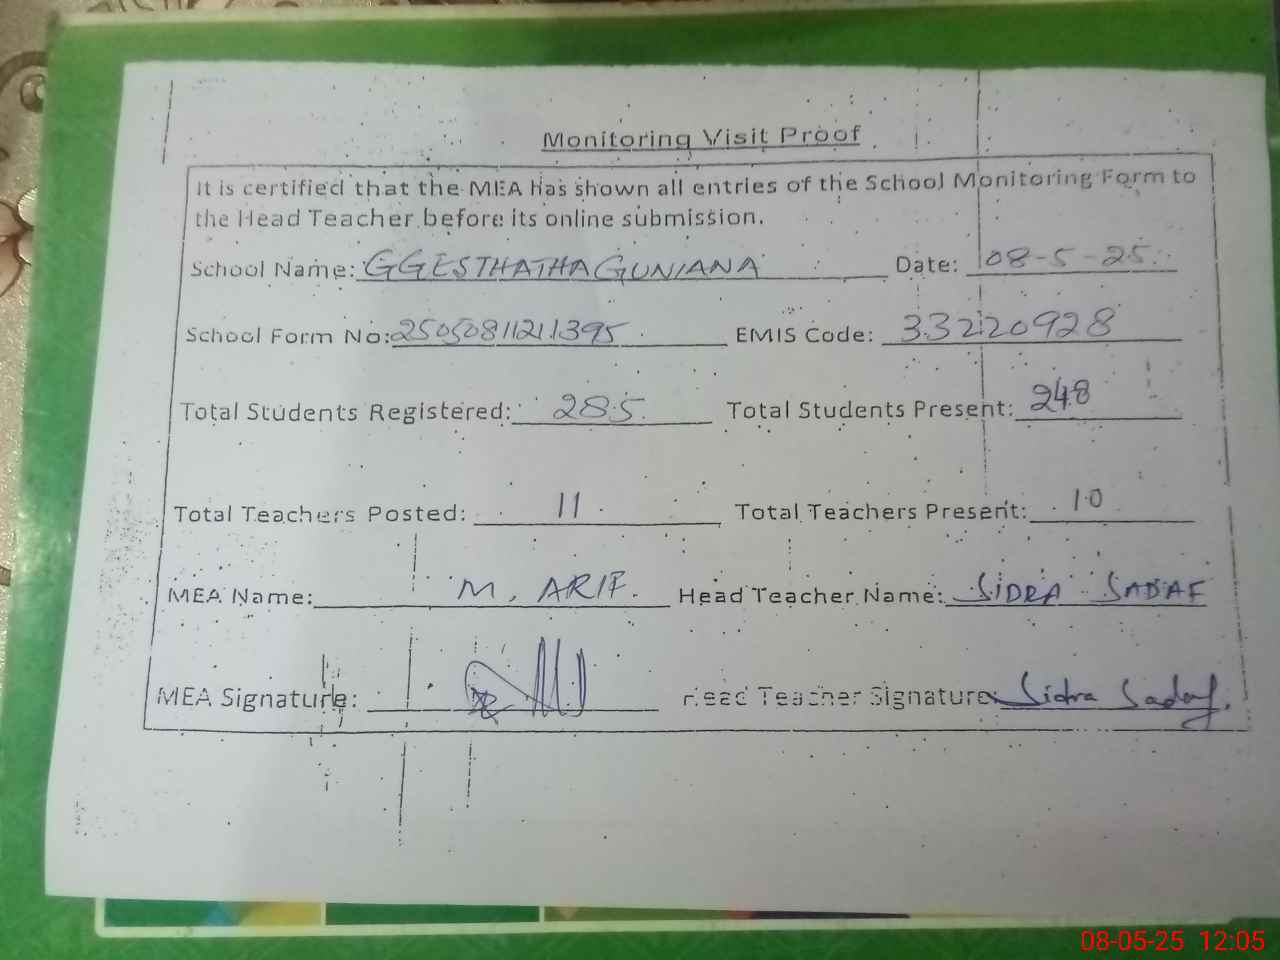 Monitoring Visit Proof
It is certified that the MEA has shown all entries of the School Monitoring Form to
the Head Teacher before its online submission.
School Name: GGES THATHA GUNIANA Date: 08-5-25
School Form No: 25050811211395 EMIS Code: 33220928
Total Students Registered: 285 Total Students Present: 248
Total Teachers Posted: 11 Total Teachers Present: 10
MEA Name: M. ARIF. Head Teacher Name: SIDRA SADAF
MEA Signature: Head Teacher Signature: Sidra Sadaf
08-05-25 12:05